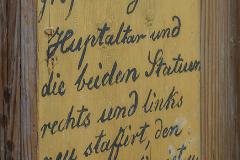 Huptaltar und
die beiden Statuen
rechts und links
neu staffirt, den